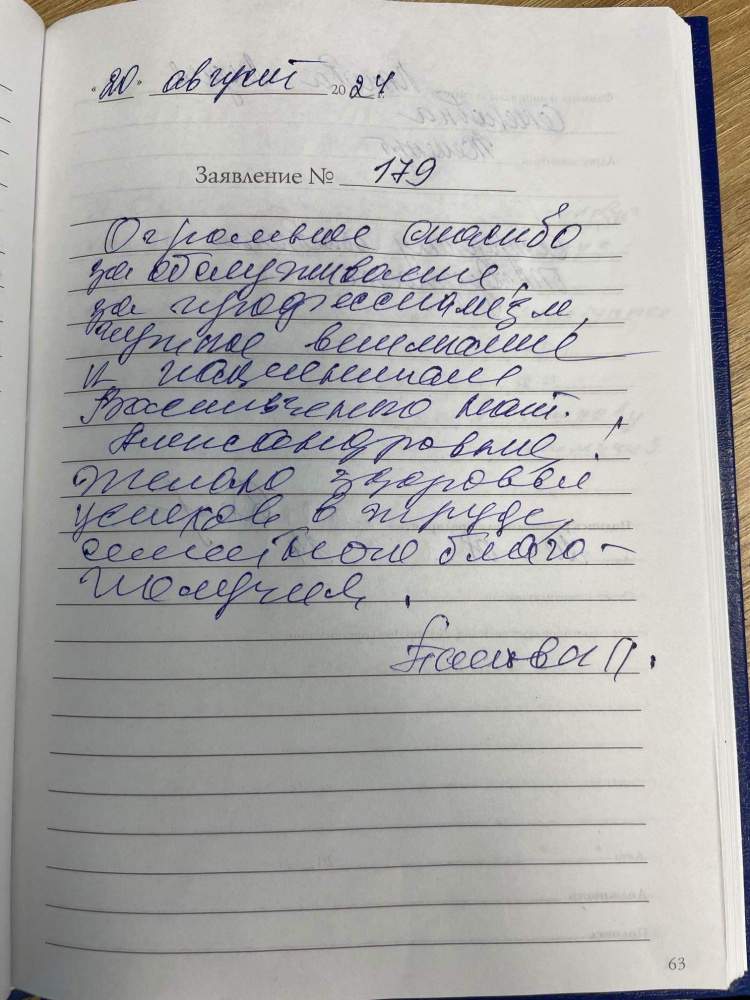 "20" август 2024
Заявление № 179
Огромное спасибо
за обслуживание,
за профессионализм,
чуткое внимание
к пациентам
Васильченко Нат.
Александровне!
Желаю здоровья
успехов в труде,
семейного благо-
получия.
63